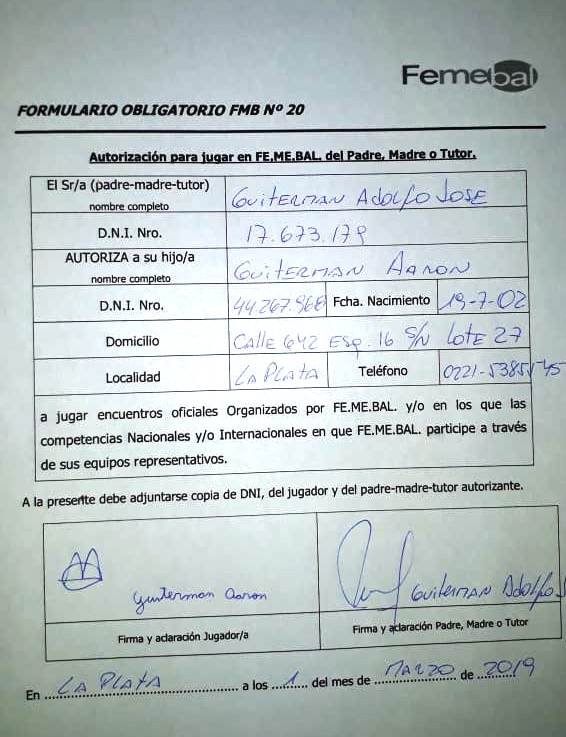 Femebal
FORMULARIO OBLIGATORIO FMB Nº 20
Autorización para jugar en FE.ME.BAL. del Padre, Madre o Tutor.
El Sr/a (padre-madre-tutor) nombre completo GuiTERMAN ADOLFO JOSE
D.N.I. Nro. 17.673.179
AUTORIZA a su hijo/a nombre completo GuiTERMAN AARON
D.N.I. Nro. 44.267.968 Fcha. Nacimiento 19-7-02
Domicilio CALLE 642 ESQ. 16 S/N LOTE 27
Localidad LA PLATA Teléfono 0221-5385545
a jugar encuentros oficiales Organizados por FE.ME.BAL. y/o en los que las
competencias Nacionales y/o Internacionales en que FE.ME.BAL. participe a través
de sus equipos representativos.
A la presente debe adjuntarse copia de DNI, del jugador y del padre-madre-tutor autorizante.
Guiterman Aaron
GuiTERMAN Adolfo J
Firma y adaración Jugador/a
Firma y adaración Padre, Madre o Tutor
En LA PLATA a los 1 del mes de MARZO de 2019